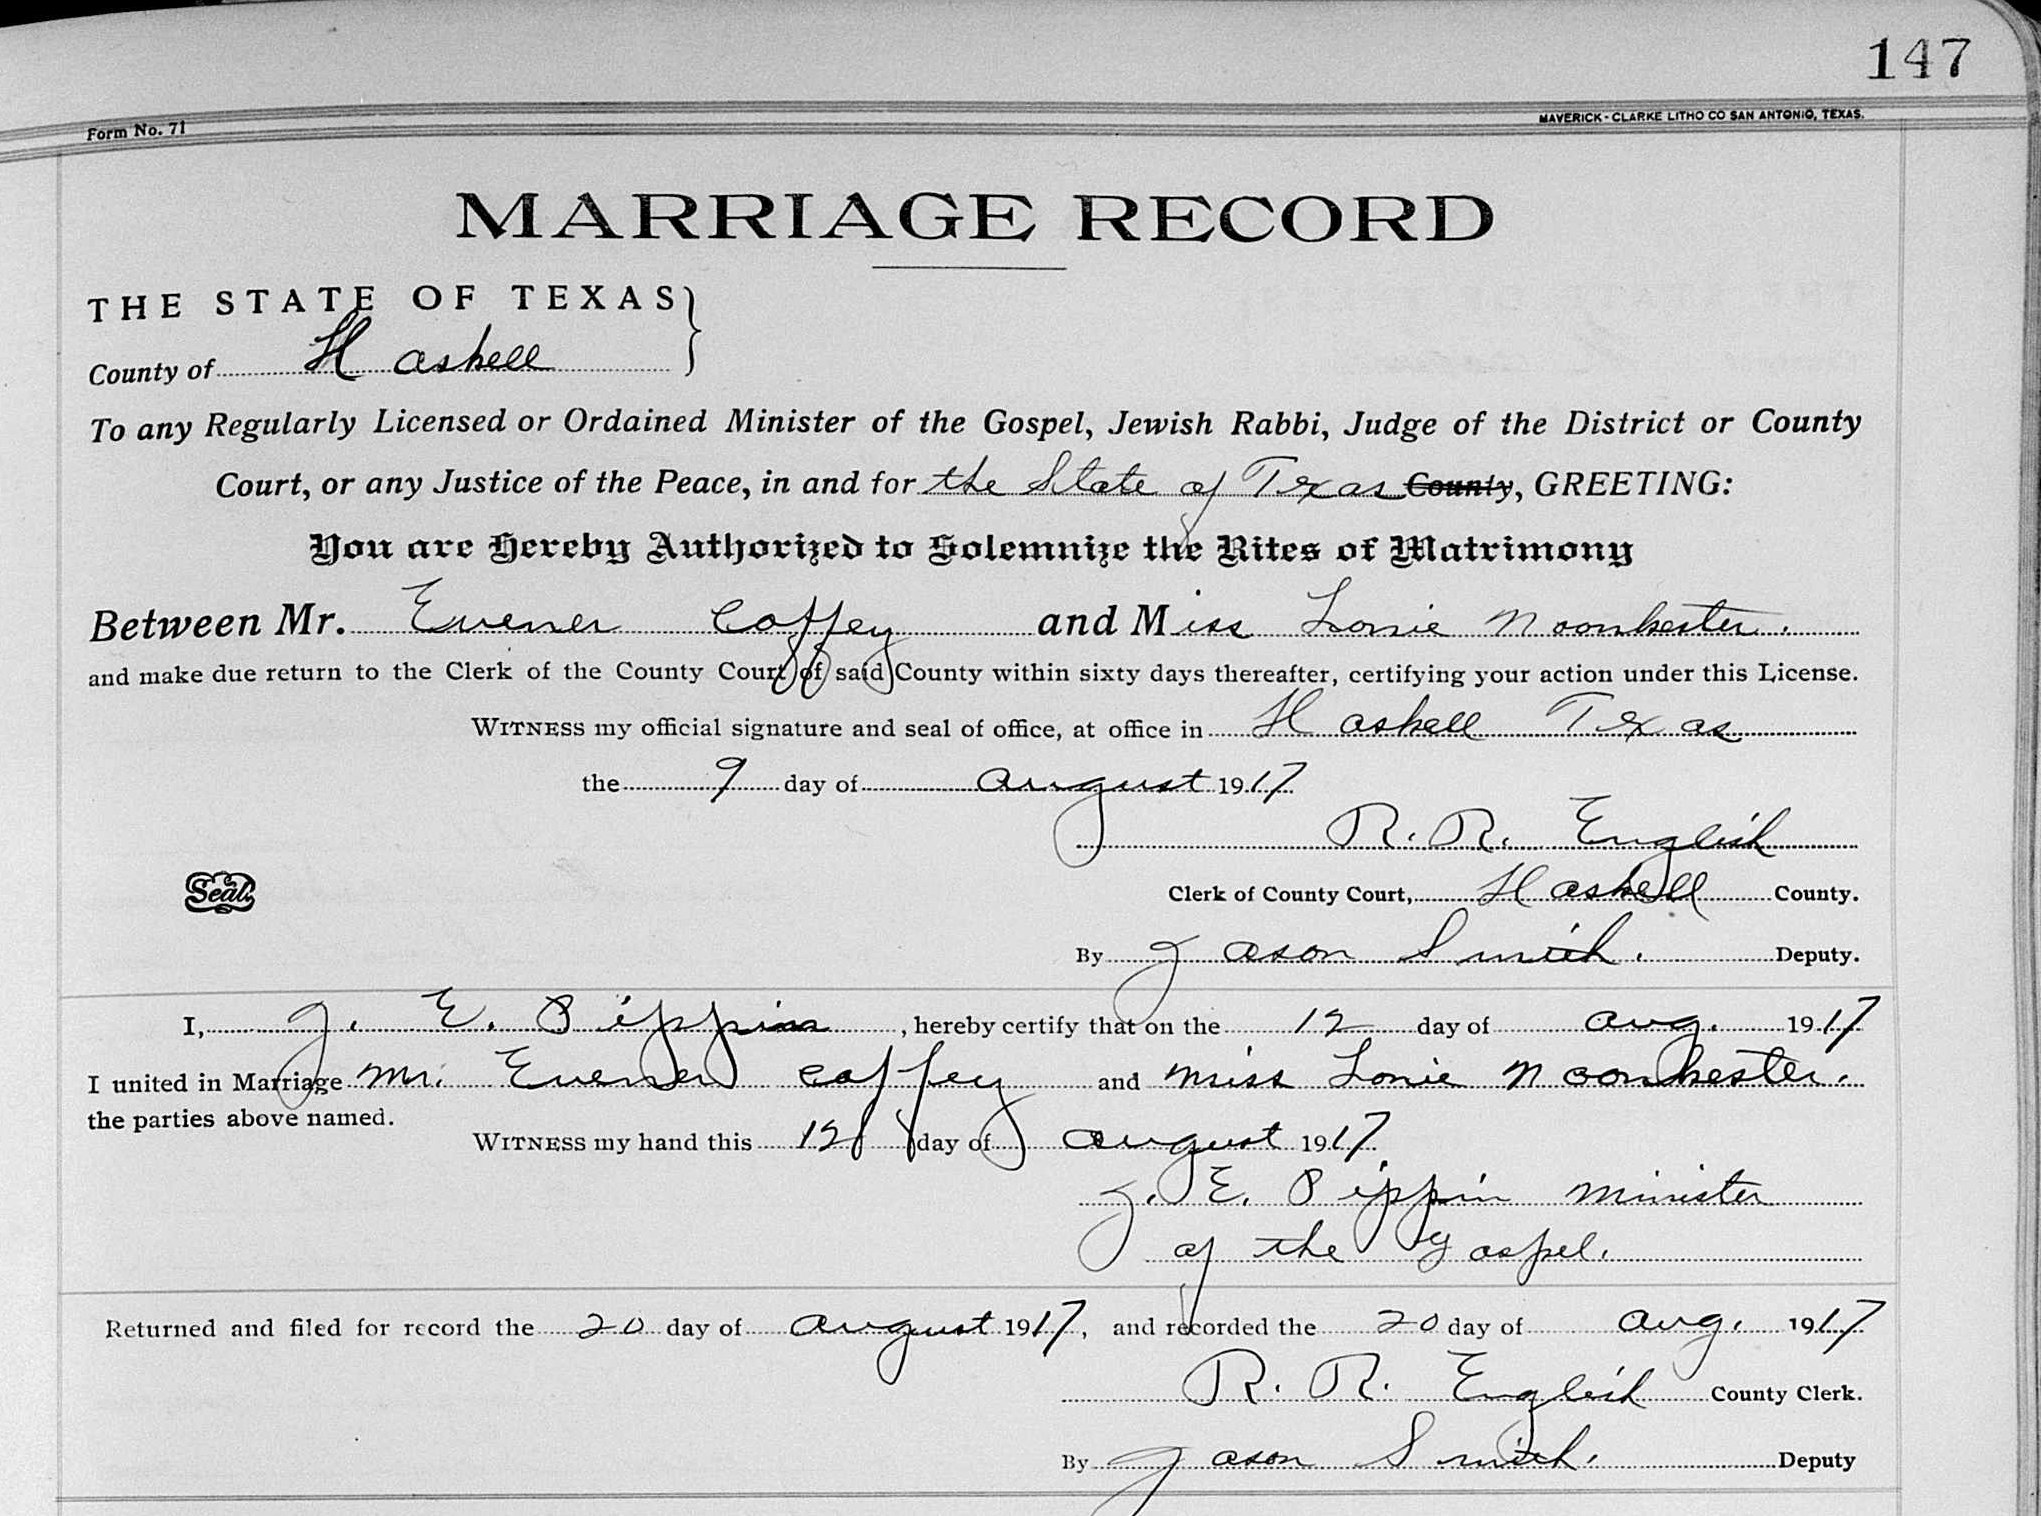 147
Form No. 71
MAVERICK-CLARKE LITHO CO SAN ANTONIO, TEXAS.
MARRIAGE RECORD
THE STATE OF TEXAS}
County of Haskell
To any Regularly Licensed or Ordained Minister of the Gospel, Jewish Rabbi, Judge of the District or County
Court, or any Justice of the Peace, in and for the State of Texas County, GREETING:
You are Hereby Authorized to Solemnize the Rites of Matrimony
Between Mr. Evener Coffey and Miss Lonie Moonhester.
and make due return to the Clerk of the County Court of said County within sixty days thereafter, certifying your action under this License.
WITNESS my official signature and seal of office, at office in Haskell Texas
the 9 day of August 1917
R. R. English
Seal
Clerk of County Court, Haskell County.
By Jason Smith. Deputy.
I, J. E. Pippin, hereby certify that on the 12 day of Aug. 1917
I united in Marriage Mr. Evener Coffey and Miss Lonie Moonhester.
the parties above named.
WITNESS my hand this 12 day of August 1917
J. E. Pippin Minister
of the Gospel.
Returned and filed for record the 20 day of August 1917, and recorded the 20 day of Aug. 1917
R. R. English County Clerk.
By Jason Smith. Deputy